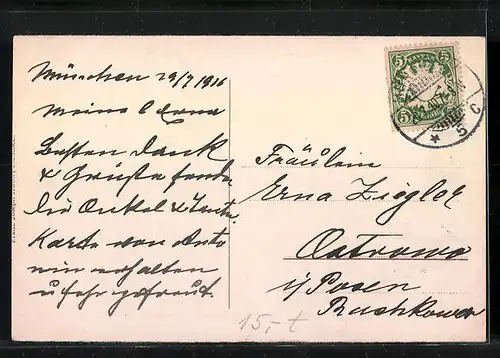 München 29/7 1916
Meine l. Erna
Besten Dank
& Grüße sendet
Dir Onkel & Tante.
Karte von
wir erhalten
u sehr gefreut.
Fräulein
Erna Ziegler
Ostrowo
i/ Posen
BAYERN
5
5
5 C
15,- t